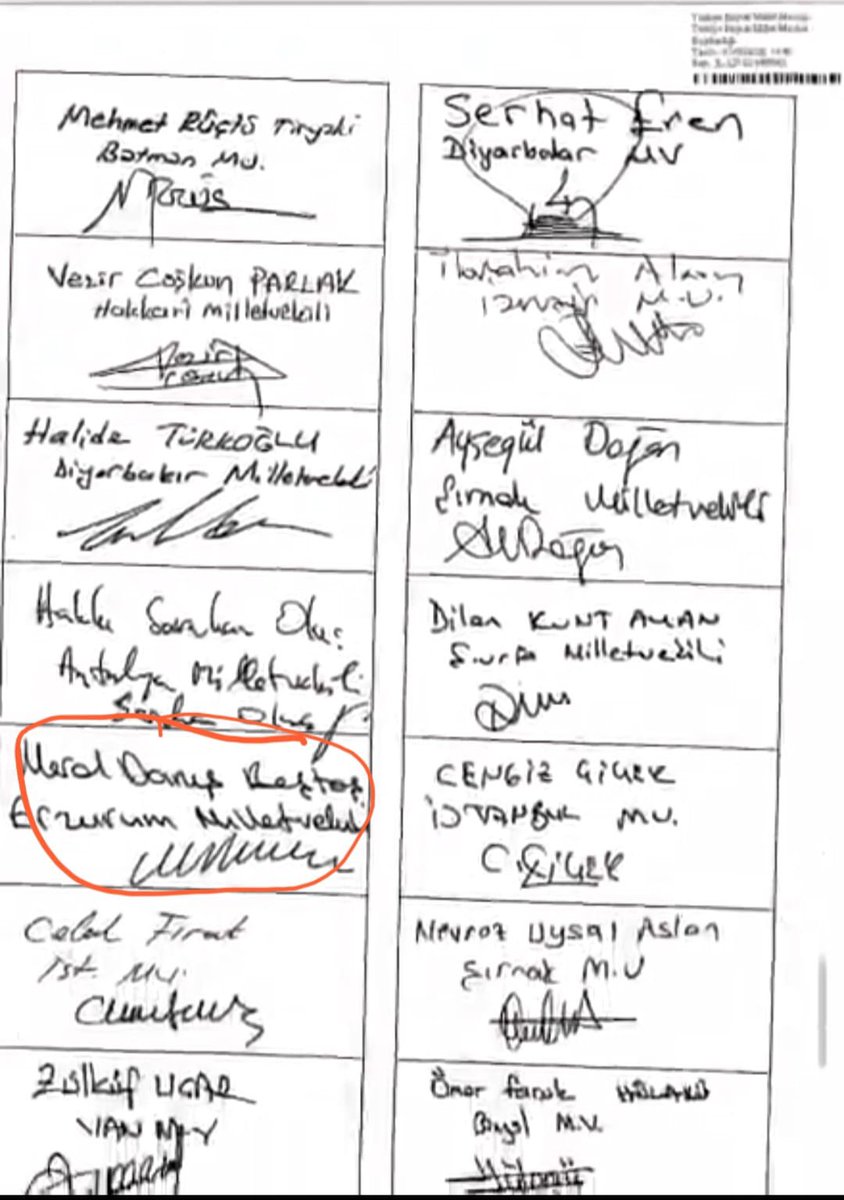 Mehmet RÜŞTÜ Tiryaki
Batman M.V.
Vezir Coşkun PARLAK
Hakkari Milletvekili
Vezir
Halide TÜRKOĞLU
Diyarbakır Milletvekili
Hakkı Saruhan Oluç
Antalya Milletvekili
Saruhan Oluç
Meral Danış Beştaş
Erzurum Milletvekili
Celal Fırat
İst. M.V.
Zülküf UÇAR
VAN M.V
Serhat Eren
Diyarbakır MV
İbrahim Akın
İzmir M.V.
Ayşegül Doğan
Şırnak Milletvekili
A Doğan
Dilan KUNT AYAN
Ş.urfa Milletvekili
CENGİZ ÇİÇEK
İSTANBUL M.V.
C.ÇİÇEK
Nevroz Uysal Aslan
Şırnak M.V
Ömer Faruk HÜLAKÜ
Bingöl M.V.